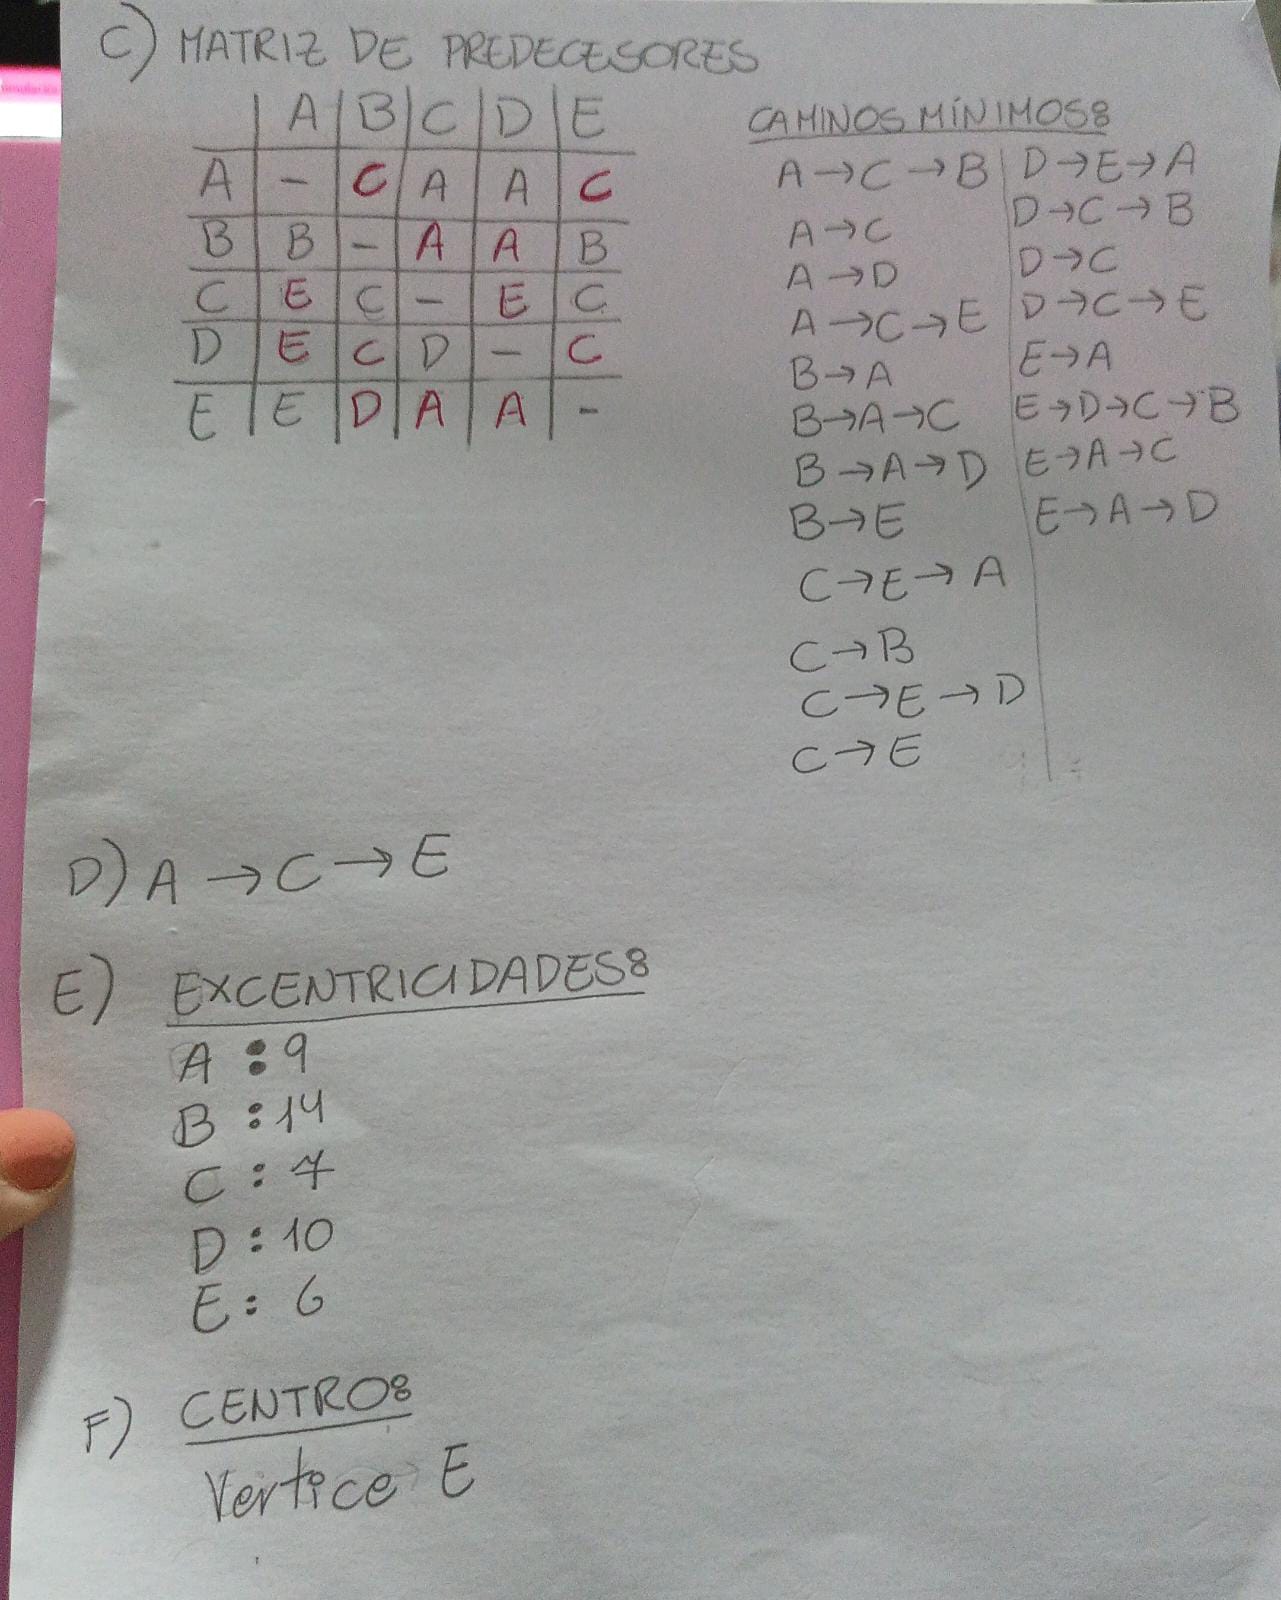 C) MATRIZ DE PREDECESORES
A B C D E
A - C A A C
B B - A A B
C E C - E C
D E C D - C
E E D A A -
CAMINOS MÍNIMOS:
A → C → B
A → C
A → D
A → C → E
B → A
B → A → C
B → A → D
B → E
C → E → A
C → B
C → E → D
C → E
D → E → A
D → C → B
D → C
D → C → E
E → A
E → D → C → B
E → A → C
E → A → D
D) A → C → E
E) EXCENTRICIDADES:
A : 9
B : 14
C : 7
D : 10
E : 6
F) CENTRO:
Vertice E